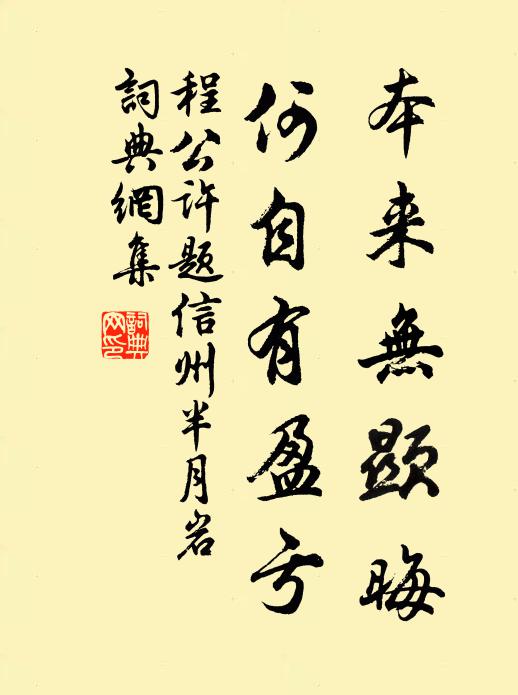 本来無顕晦
何自有盈亏
程公许题信州半月岩
詞典網集
詞典網印